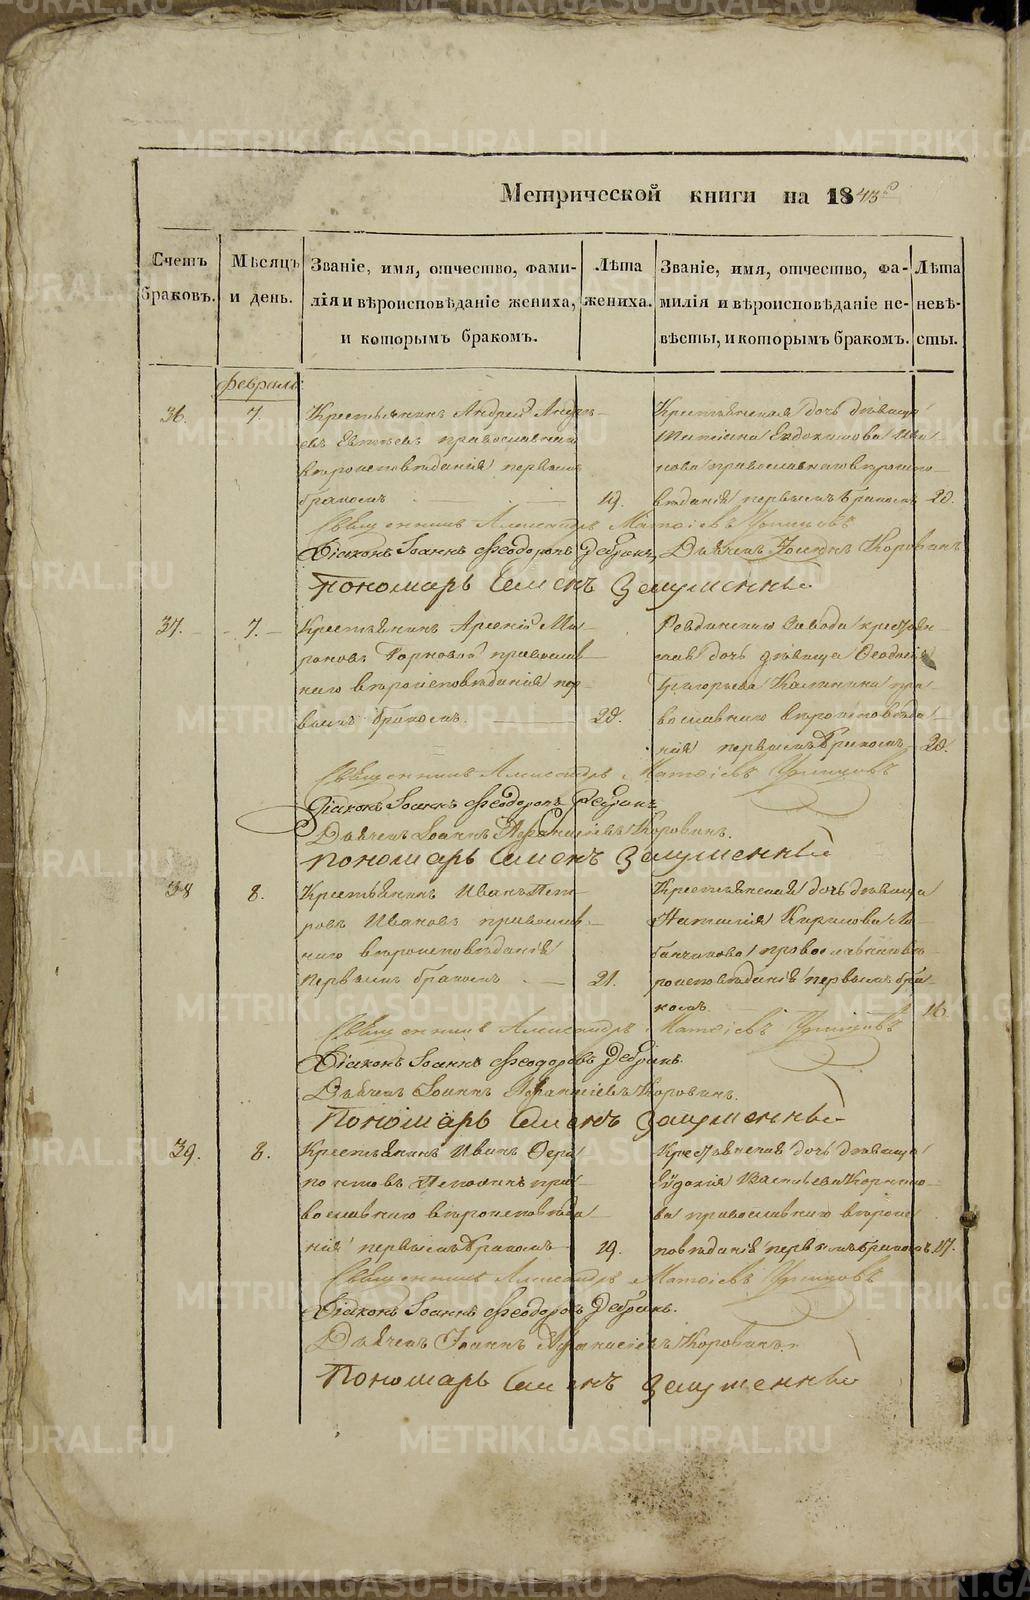 Метрической книги на 1843
Счетъ браковъ.
Мѣсяцъ и день.
Званіе, имя, отчество, фами-
лія и вѣроисповѣданіе жениха,
и которымъ бракомъ.
Лѣта
жениха.
Званіе, имя, отчество, фа-
милія и вѣроисповѣданіе не-
вѣсты, и которымъ бракомъ.
Лѣта
невѣ-
сты.
Февраль
36. 7.
Крестьянинъ Андрей Андре-
евъ православнаго
вѣроисповѣданія первымъ
бракомъ 19.
Крестьянская дочь дѣвица
Татіана Евдокимова Ива-
нова православнаго вѣроиспо-
вѣданія первымъ бракомъ 20.
Священникъ Александръ Матѳіевъ
Діаконъ Іоаннъ Феодоровъ Дебринъ, Дьячекъ Іоаннъ Коровинъ
Пономарь Симеонъ
37. 7.
Крестьянинъ Арсеній Ми-
роновъ православ-
наго вѣроисповѣданія пер-
вымъ бракомъ. 20.
Ревдинскаго Завода крестьян-
ская дочь дѣвица Ѳеодосія
Григорьева Калинина пра-
вославнаго вѣроисповѣда-
нія первымъ бракомъ 20.
Священникъ Александръ Матѳіевъ
Діаконъ Іоаннъ Феодоровъ Дебринъ
Дьячекъ Іоаннъ Афанасіевъ Коровинъ.
Пономарь Симеонъ
38 8.
Крестьянинъ Иванъ Пет-
ровъ Ивановъ православ-
наго вѣроисповѣданія
первымъ бракомъ 21.
Крестьянская дочь дѣвица
Наталія Кирилова Ло-
банчикова православнаго вѣ-
роисповѣданія первымъ бра-
комъ 16.
Священникъ Александръ Матѳіевъ
Діаконъ Іоаннъ Феодоровъ Дебринъ.
Дьячекъ Іоаннъ Афанасіевъ Коровинъ.
Пономарь Симеонъ
39. 8.
Крестьянинъ Иванъ Фера-
понтовъ пра-
вославнаго вѣроисповѣда-
нія первымъ бракомъ 19.
Крестьянская дочь дѣвица
Евдокія Васильева Корнило-
ва православнаго вѣроис-
повѣданія первымъ бракомъ 17.
Священникъ Александръ Матѳіевъ
Діаконъ Іоаннъ Феодоровъ Дебринъ.
Дьячекъ Іоаннъ Афанасіевъ Коровинъ
Пономарь Симеонъ
METRIKI.GASO-URAL.RU